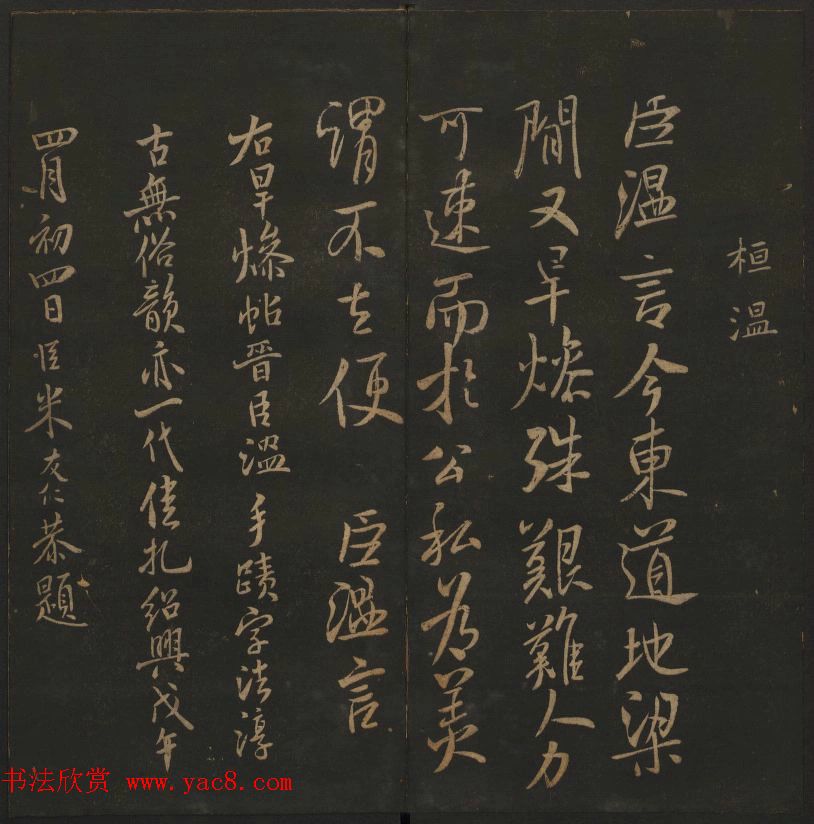 桓温
臣温言今東道地梁
間又旱燥殊艱難人力
可速而於公私為美
謂不去便 臣温言
右旱燥帖晉臣溫手蹟字法淳
古無俗韻亦一代佳札紹興戊午
四月初四日臣米友仁恭題
书法欣赏 www.yac8.com